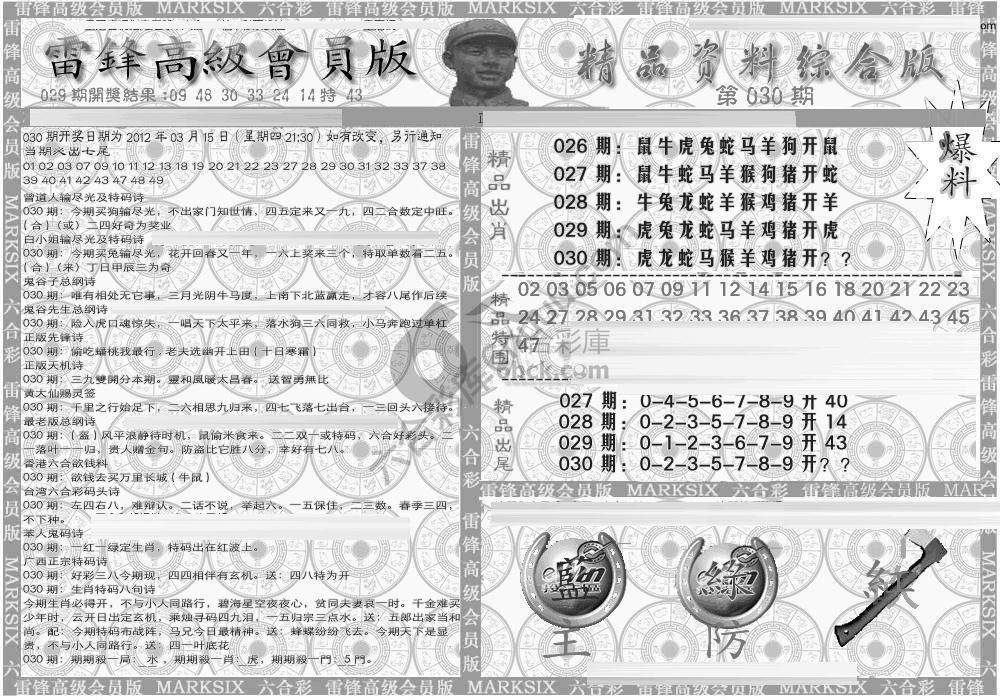 雷锋高级会员版 MARKSIX 六合彩 雷锋高级会员版 MARKSIX 六合彩 雷锋高级会员版 MARKSIX 六合彩 雷锋
雷鋒高級會員版
精品资料综合版
029期開獎結果:09 48 30 33 24 14特 43
第 030 期
030期开奖日期为2012年03月15日(星期四21:30)如有改变,另行通知
当期必出七尾
01 02 03 07 09 10 11 12 13 18 19 20 21 22 23 27 28 29 30 31 32 33 37 38
39 40 41 42 43 47 48 49
曾道人输尽光及特码诗
030期:今期买狗输尽光,不出家门知世情,四五定来又一九,四二合数定中旺。
(合)(或)二四好奇为奖业
白小姐输尽光及特码诗
030期:今期买兔输尽光,花开回春又一年,一六上奖来三个,特取单数看二五。
(合)(来)丁日甲辰三为奇
鬼谷子总纲诗
030期:唯有相处无它事,三月光阴牛马度,上南下北蓝赢走,才容八尾作后续
鬼谷先生总纲诗
030期:险入虎口魂惊失,一唱天下太平来,落水狗三六同救,小马奔跑过单杠
正版先锋诗
030期:偷吃蟠桃我最行.老夫选幽开上田(十日寒霜)
正版天机诗
030期:三九雙開分本期。靈和風暖太昌春。送智勇無比
黄大仙赐灵签
030期:千里之行始足下,二六相思九归来,四七飞落七出台,一三回头六接待。
最老版总纲诗
030期:(盗)风平浪静待时机,鼠偷米食来。二二双一或特码,六合好彩头。二
一落叶一一归,贵人赠金句。防盗比它胜八分,幸好有七八。
香港六合欲钱料
030期:欲钱去买万里长城(牛鼠)
台湾六合彩码头诗
030期:左四右八,难辩认。二话不说,举起六。一五保住,二三数。春季三四,
不下种。
笨人鬼码诗
030期:一红一绿定生肖,特码出在红波上。
广西正宗特码诗
030期:好彩三八今期现,四四相伴有玄机。送:四八特为开
030期:生肖特码八句诗
今期生肖必得开,不与小人同路行,碧海星空夜夜心,贫同夫妻哀一时。千金难买
少年时,云开日出定玄机,乘烛寻码四九泪,一五归宗三点水。送:五郎出家当和
尚。配:今期特码布战阵,马兄今日最精神。送:蜂蝶纷纷飞去。今期天下是显
贵,不与小人同路行。送:四一叶底花
030期:期期殺一局:水,期期殺一肖:虎,期期殺一門:5門。
精品出肖
026 期:鼠牛虎兔蛇马羊狗开鼠
027 期:鼠牛蛇马羊猴狗猪开蛇
028 期:牛兔龙蛇羊猴鸡猪开羊
029 期:虎兔龙蛇马羊鸡猪开虎
030 期:虎龙蛇马猴羊鸡猪开??
爆料
精品特围
02 03 05 06 07 09 11 12 14 15 16 18 20 21 22 23
24 27 28 29 31 32 33 36 37 38 39 40 41 42 43 45
47
精品出尾
027 期:0-4-5-6-7-8-9 开 40
028 期:0-2-3-5-7-8-9 开 14
029 期:0-1-2-3-6-7-9 开 43
030 期:0-2-3-5-7-8-9 开??
雷锋高级会员版 MARKSIX 六合彩 雷锋高级会员版 MARKSIX 六合彩 雷锋
主
防
雷锋高级会员版 MARKSIX 六合彩 雷锋高级会员版 MARKSIX 六合彩 雷锋高级会员版 MARKSIX 六合彩 雷锋